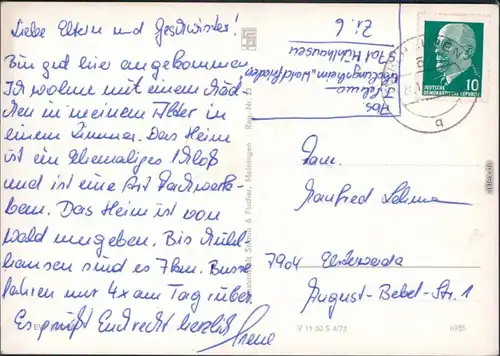 Liebe Eltern und Geschwister!
Bin gut hier angekommen.
Ich wohne mit einem Mäd-
chen in meinem Alter in
einem Zimmer. Das Heim
ist ein Ehemaliges Schloß
und ist eine Art Fachwerk-
bau. Das Heim ist von
Wald umgeben. Bis Mühl-
hausen sind es 7km. Busse
fahren nur 4x am Tag rüber
Es grüßt Euch recht herzlich Irene
Abs.
I. Lehma
Genesungsheim "Waldfrieden"
Mühlhausen
Zi. 6
DEUTSCHE
DEMOKRATISCHE REPUBLIK
10
Fam.
Manfred Lehma
7904 Elsterwerda
August-Bebel-Str. 1
& Fischer, Meiningen
V 11 50 S 4/73
6985